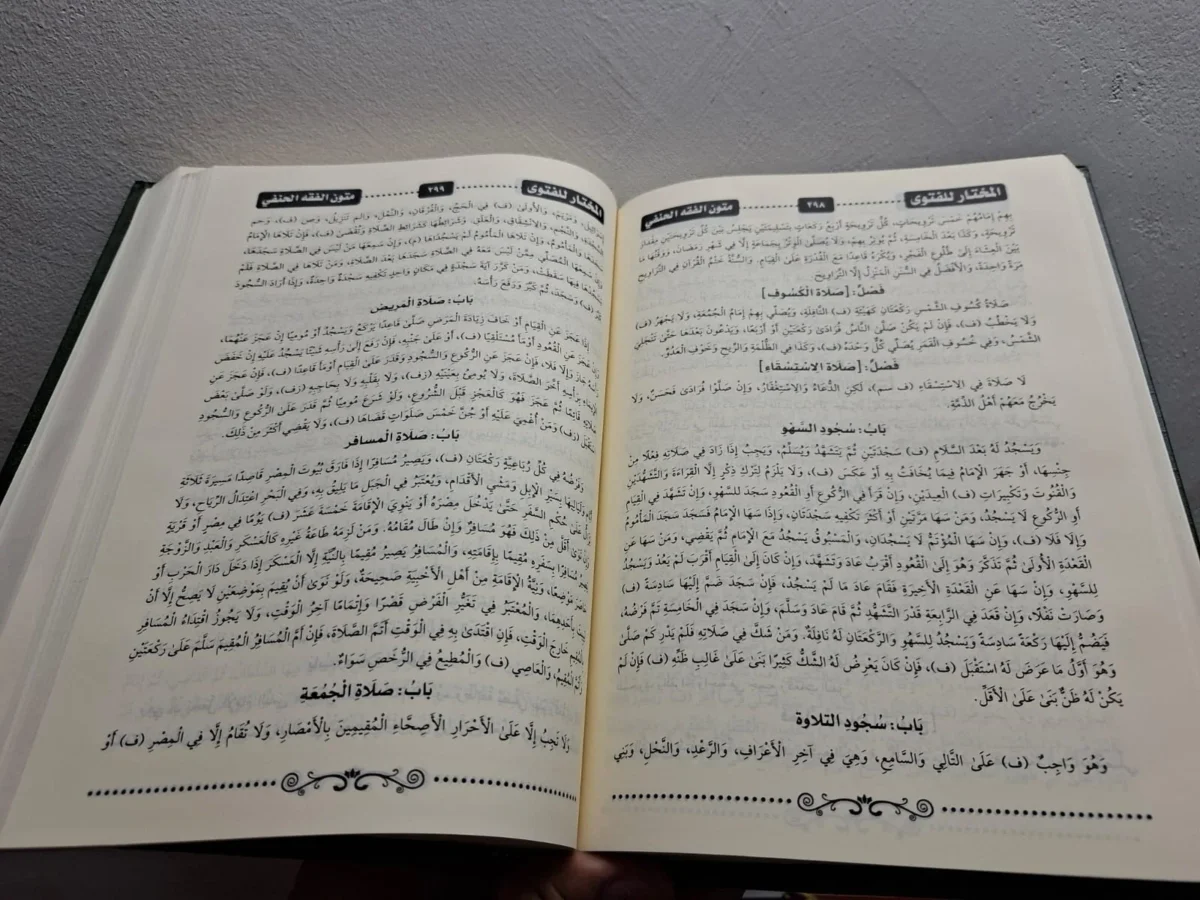 المختار للفتوى ٢٩٨ متون الفقه الحنفي
بِهِمْ إِمَامُهُمْ خَمْسَ تَرْوِيحَاتٍ، كُلُّ تَرْوِيحَةٍ أَرْبَعُ رَكَعَاتٍ بِتَسْلِيمَتَيْنِ يَجْلِسُ بَيْنَ كُلِّ تَرْوِيحَتَيْنِ مِقْدَارَ
تَرْوِيحَةٍ، وَكَذَا بَعْدَ الْخَامِسَةِ، ثُمَّ يُوتِرُ بِهِمْ، وَلَا يُصَلَّى الْوِتْرُ بِجَمَاعَةٍ إِلَّا فِي شَهْرِ رَمَضَانَ، وَوَقْتُهَا مَا
بَيْنَ الْعِشَاءِ إِلَى طُلُوعِ الْفَجْرِ، وَيُكْرَهُ قَاعِدًا مَعَ الْقُدْرَةِ عَلَى الْقِيَامِ. وَالسُّنَّةُ خَتْمُ الْقُرْآنِ فِي التَّرَاوِيحِ
مَرَّةً وَاحِدَةً، وَالْأَفْضَلُ فِي السُّنَنِ الْمَنْزِلُ إِلَّا التَّرَاوِيحَ.
فَصْلٌ: [صَلَاةُ الْكُسُوفِ]
صَلَاةُ كُسُوفِ الشَّمْسِ رَكْعَتَانِ كَهَيْئَةِ (ف) النَّافِلَةِ، وَيُصَلِّي بِهِمْ إِمَامُ الْجُمُعَةِ، وَلَا يَجْهَرُ (ف)
وَلَا يَخْطُبُ (ف)، فَإِنْ لَمْ يَكُنْ صَلَّى النَّاسُ فُرَادَى رَكْعَتَيْنِ أَوْ أَرْبَعًا، وَيَدْعُونَ بَعْدَهَا حَتَّى تَنْجَلِيَ
الشَّمْسُ، وَفِي خُسُوفِ الْقَمَرِ يُصَلِّي كُلٌّ وَحْدَهُ (ف)، وَكَذَا فِي الظُّلْمَةِ وَالرِّيحِ وَخَوْفِ الْعَدُوِّ.
فَصْلٌ: [صَلَاةُ الِاسْتِسْقَاءِ]
لَا صَلَاةَ فِي الِاسْتِسْقَاءِ (ف سم)، لَكِنِ الدُّعَاءُ وَالِاسْتِغْفَارُ، وَإِنْ صَلَّوْا فُرَادَى فَحَسَنٌ، وَلَا
يَخْرُجُ مَعَهُمْ أَهْلُ الذِّمَّةِ.
بَابُ: سُجُودِ السَّهْوِ
وَيَسْجُدُ لَهُ بَعْدَ السَّلَامِ (ف) سَجْدَتَيْنِ ثُمَّ يَتَشَهَّدُ وَيُسَلِّمُ، وَيَجِبُ إِذَا زَادَ فِي صَلَاتِهِ فِعْلًا مِنْ
جِنْسِهَا، أَوْ جَهَرَ الْإِمَامُ فِيمَا يُخَافَتُ بِهِ أَوْ عَكَسَ (ف)، وَلَا يَلْزَمُ لِتَرْكِ ذِكْرٍ إِلَّا الْقِرَاءَةَ وَالتَّشَهُّدَيْنِ
وَالْقُنُوتَ وَتَكْبِيرَاتِ (ف) الْعِيدَيْنِ، وَإِنْ قَرَأَ فِي الرُّكُوعِ أَوِ الْقُعُودِ سَجَدَ لِلسَّهْوِ، وَإِنْ تَشَهَّدَ فِي الْقِيَامِ
أَوِ الرُّكُوعِ لَا يَسْجُدُ، وَمَنْ سَهَا مَرَّتَيْنِ أَوْ أَكْثَرَ تَكْفِيهِ سَجْدَتَانِ، وَإِذَا سَهَا الْإِمَامُ فَسَجَدَ سَجَدَ الْمَأْمُومُ
وَإِلَّا فَلَا (ف)، وَإِنْ سَهَا الْمُؤْتَمُّ لَا يَسْجُدَانِ، وَالْمَسْبُوقُ يَسْجُدُ مَعَ الْإِمَامِ ثُمَّ يَقْضِي، وَمَنْ سَهَا عَنِ
الْقَعْدَةِ الْأُولَى ثُمَّ تَذَكَّرَ وَهُوَ إِلَى الْقُعُودِ أَقْرَبُ عَادَ وَتَشَهَّدَ، وَإِنْ كَانَ إِلَى الْقِيَامِ أَقْرَبَ لَمْ يَعُدْ وَيَسْجُدُ
لِلسَّهْوِ، وَإِنْ سَهَا عَنِ الْقَعْدَةِ الْأَخِيرَةِ فَقَامَ عَادَ مَا لَمْ يَسْجُدْ، فَإِنْ سَجَدَ ضَمَّ إِلَيْهَا سَادِسَةً (ف)
وَصَارَتْ نَفْلًا، وَإِنْ قَعَدَ فِي الرَّابِعَةِ قَدْرَ التَّشَهُّدِ ثُمَّ قَامَ عَادَ وَسَلَّمَ، وَإِنْ سَجَدَ فِي الْخَامِسَةِ تَمَّ فَرْضُهُ،
فَيَضُمُّ إِلَيْهَا رَكْعَةً سَادِسَةً وَيَسْجُدُ لِلسَّهْوِ وَالرَّكْعَتَانِ لَهُ نَافِلَةٌ. وَمَنْ شَكَّ فِي صَلَاتِهِ فَلَمْ يَدْرِ كَمْ صَلَّى
وَهُوَ أَوَّلُ مَا عَرَضَ لَهُ اسْتَقْبَلَ (ف)، فَإِنْ كَانَ يَعْرِضُ لَهُ الشَّكُّ كَثِيرًا بَنَى عَلَى غَالِبِ ظَنِّهِ (ف) فَإِنْ لَمْ
يَكُنْ لَهُ ظَنٌّ بَنَى عَلَى الْأَقَلِّ.
بَابُ: سُجُودِ التلاوة
وَهُوَ وَاجِبٌ (ف) عَلَى التَّالِي وَالسَّامِعِ، وَهِيَ فِي آخِرِ الْأَعْرَافِ، وَالرَّعْدِ، وَالنَّحْلِ، وَبَنِي
المختار للفتوى ٢٩٩ متون الفقه الحنفي
وَمَرْيَمَ، وَالْأُولَى (ف) فِي الْحَجِّ، وَالْفُرْقَانِ، وَالنَّمْلِ، وَالم تَنْزِيلُ، وَص (ف)، وَحم
وَالنَّجْمِ، وَالِانْشِقَاقِ، وَالْعَلَقِ. وَشَرَائِطُهَا كَشَرَائِطِ الصَّلَاةِ وَتُقْضَى (ف)، فَإِنْ تَلَاهَا الْإِمَامُ
وَالْمَأْمُومُ، وَإِنْ تَلَاهَا الْمَأْمُومُ لَمْ يَسْجُدَاهَا (م)، وَإِنْ سَمِعَهَا مَنْ لَيْسَ فِي الصَّلَاةِ سَجَدَهَا،
سَمِعَهَا الْمُصَلِّي مِمَّنْ لَيْسَ مَعَهُ فِي الصَّلَاةِ سَجَدَهَا بَعْدَ الصَّلَاةِ، وَمَنْ تَلَاهَا فِي الصَّلَاةِ فَلَمْ
يَسْجُدْهَا فِيهَا سَقَطَتْ، وَمَنْ كَرَّرَ آيَةَ سَجْدَةٍ فِي مَكَانٍ وَاحِدٍ تَكْفِيهِ سَجْدَةٌ وَاحِدَةٌ، وَإِذَا أَرَادَ السُّجُودَ
(ف) وَسَجَدَ، ثُمَّ كَبَّرَ وَرَفَعَ رَأْسَهُ.
بَابُ: صَلَاةِ الْمَرِيضِ
إِذَا عَجَزَ عَنِ الْقِيَامِ أَوْ خَافَ زِيَادَةَ الْمَرَضِ صَلَّى قَاعِدًا يَرْكَعُ وَيَسْجُدُ أَوْ مُومِيًا إِنْ عَجَزَ عَنْهُمَا،
عَجَزَ عَنِ الْقُعُودِ أَوْمَأَ مُسْتَلْقِيًا (ف)، أَوْ عَلَى جَنْبِهِ، فَإِنْ رَفَعَ إِلَى رَأْسِهِ شَيْئًا يَسْجُدُ عَلَيْهِ إِنْ خَفَضَ
جَازَ وَإِلَّا فَلَا، فَإِنْ عَجَزَ عَنِ الرُّكُوعِ وَالسُّجُودِ وَقَدَرَ عَلَى الْقِيَامِ أَوْمَأَ قَاعِدًا (ف)، فَإِنْ عَجَزَ عَنِ
الْإِيمَاءِ بِرَأْسِهِ أَخَّرَ الصَّلَاةَ، وَلَا يُومِئُ بِعَيْنَيْهِ (زف)، وَلَا بِقَلْبِهِ وَلَا بِحَاجِبِهِ (زف)، وَلَوْ صَلَّى بَعْضَ
صَلَاتِهِ قَائِمًا ثُمَّ عَجَزَ فَهُوَ كَالْعَجْزِ قَبْلَ الشُّرُوعِ، وَلَوْ شَرَعَ مُومِيًا ثُمَّ قَدَرَ عَلَى الرُّكُوعِ وَالسُّجُودِ
(زف) وَمَنْ أُغْمِيَ عَلَيْهِ أَوْ جُنَّ خَمْسَ صَلَوَاتٍ قَضَاهَا (ف)، وَلَا يَقْضِي أَكْثَرَ مِنْ ذَلِكَ.
بَابُ: صَلَاةِ الْمُسَافِرِ
وَفَرْضُهُ فِي كُلِّ رُبَاعِيَّةٍ رَكْعَتَانِ (ف)، وَيَصِيرُ مُسَافِرًا إِذَا فَارَقَ بُيُوتَ الْمِصْرِ قَاصِدًا مَسِيرَةَ ثَلَاثَةِ
وَلَيَالِيهَا بِسَيْرِ الْإِبِلِ وَمَشْيِ الْأَقْدَامِ، وَيُعْتَبَرُ فِي الْجَبَلِ مَا يَلِيقُ بِهِ، وَفِي الْبَحْرِ اعْتِدَالُ الرِّيَاحِ، وَلَا
عَلَى حُكْمِ السَّفَرِ حَتَّى يَدْخُلَ مِصْرَهُ أَوْ يَنْوِيَ الْإِقَامَةَ خَمْسَةَ عَشَرَ (ف) يَوْمًا فِي مِصْرٍ أَوْ قَرْيَةٍ
أَقَلَّ مِنْ ذَلِكَ فَهُوَ مُسَافِرٌ وَإِنْ طَالَ مُقَامُهُ. وَمَنْ لَزِمَهُ طَاعَةُ غَيْرِهِ كَالْعَسْكَرِ وَالْعَبْدِ وَالزَّوْجَةِ
مُسَافِرًا بِسَفَرِهِ مُقِيمًا بِإِقَامَتِهِ، وَالْمُسَافِرُ يَصِيرُ مُقِيمًا بِالنِّيَّةِ إِلَّا الْعَسْكَرَ إِذَا دَخَلَ دَارَ الْحَرْبِ أَوْ
مَوْضِعًا، وَنِيَّةُ الْإِقَامَةِ مِنْ أَهْلِ الْأَخْبِيَةِ صَحِيحَةٌ، وَلَوْ نَوَى أَنْ يُقِيمَ بِمَوْضِعَيْنِ لَا يَصِحُّ إِلَّا أَنْ
بِأَحَدِهِمَا، وَالْمُعْتَبَرُ فِي تَغَيُّرِ الْفَرْضِ قَصْرًا وَإِتْمَامًا آخِرُ الْوَقْتِ، وَلَا يَجُوزُ اقْتِدَاءُ الْمُسَافِرِ
خَارِجَ الْوَقْتِ، فَإِنِ اقْتَدَى بِهِ فِي الْوَقْتِ أَتَمَّ الصَّلَاةَ، فَإِنْ أَمَّ الْمُسَافِرُ الْمُقِيمَ سَلَّمَ عَلَى رَكْعَتَيْنِ
الْمُقِيمُ، وَالْعَاصِي (ف) وَالْمُطِيعُ فِي الرُّخَصِ سَوَاءٌ.
بَابُ: صَلَاةِ الْجُمُعَةِ
وَلَا تَجِبُ إِلَّا عَلَى الْأَحْرَارِ الْأَصِحَّاءِ الْمُقِيمِينَ بِالْأَمْصَارِ، وَلَا تُقَامُ إِلَّا فِي الْمِصْرِ (ف) أَوْ